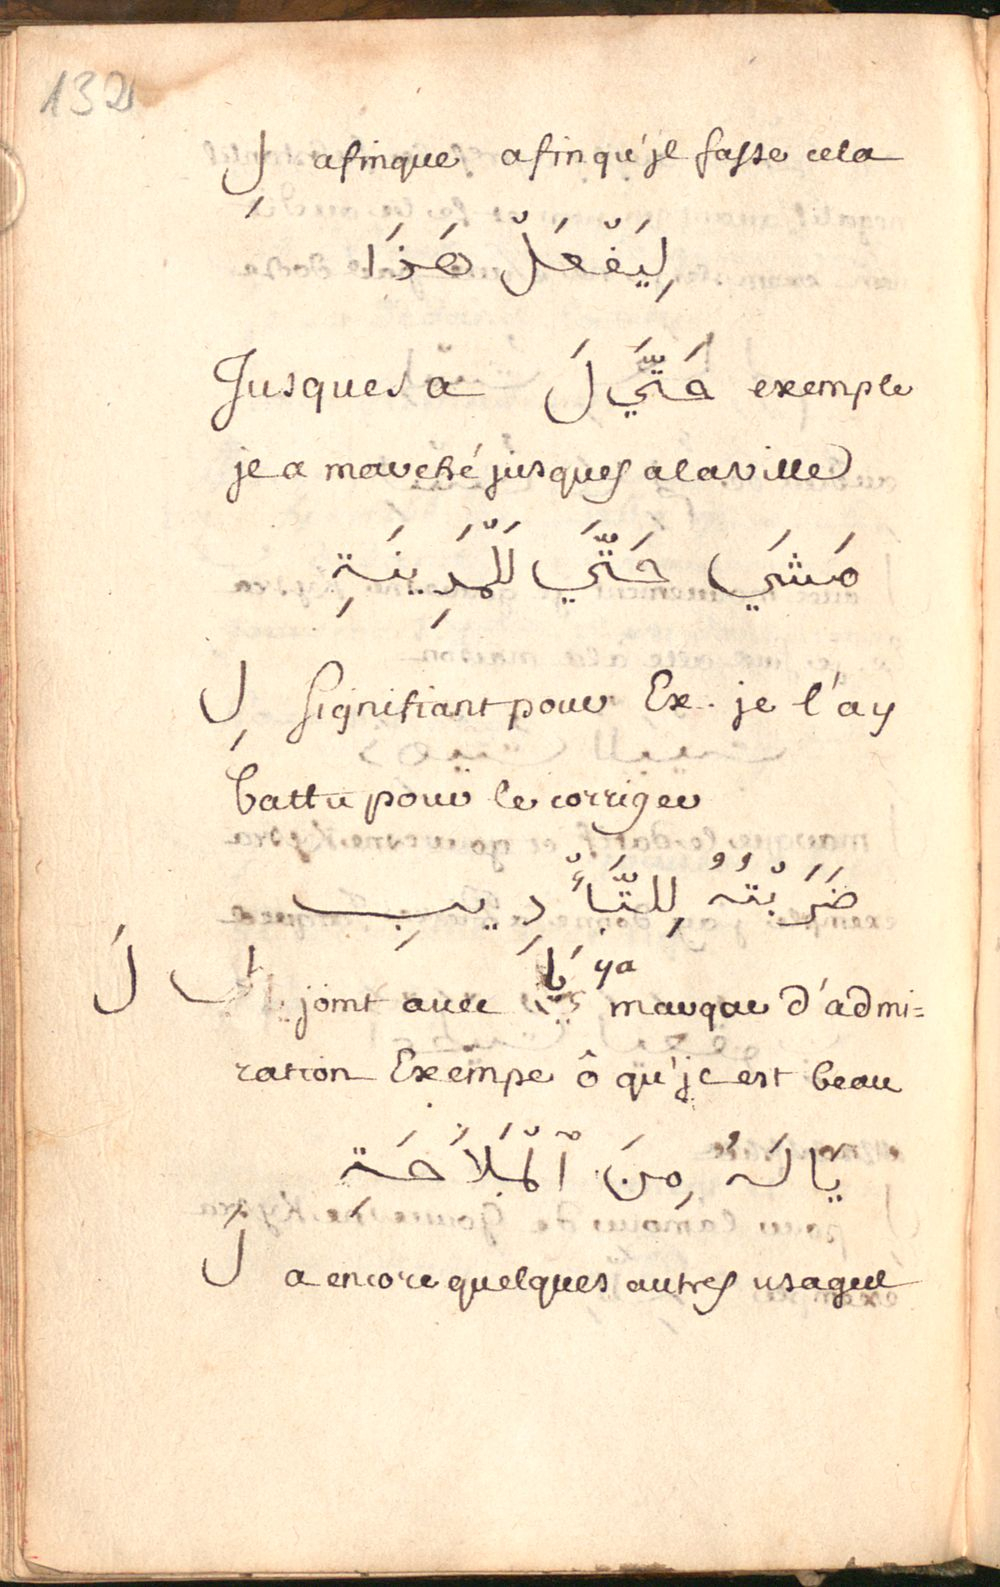 132
لِ afinque afinqu'jl fasse cela
لِيَفْعَلْ هَذَا
Jusques a حَتَّيَ لَ exemple
jl a marché jusques a la ville
مَشَي حَتَّيَ لَلْمَدِينَةِ
لِ signifiant pour Ex. je l'ay
battu pour le corriger
ضَرَبْتُهُ لِلتَّأْدِيبِ
لَ joint avec يَا ya marque d'admi=
ration Exempe ô qu'jl est beau
يَا لَهُ مِنَ ٱلْمَلَاحَةِ
لِ a encore quelques autres usages